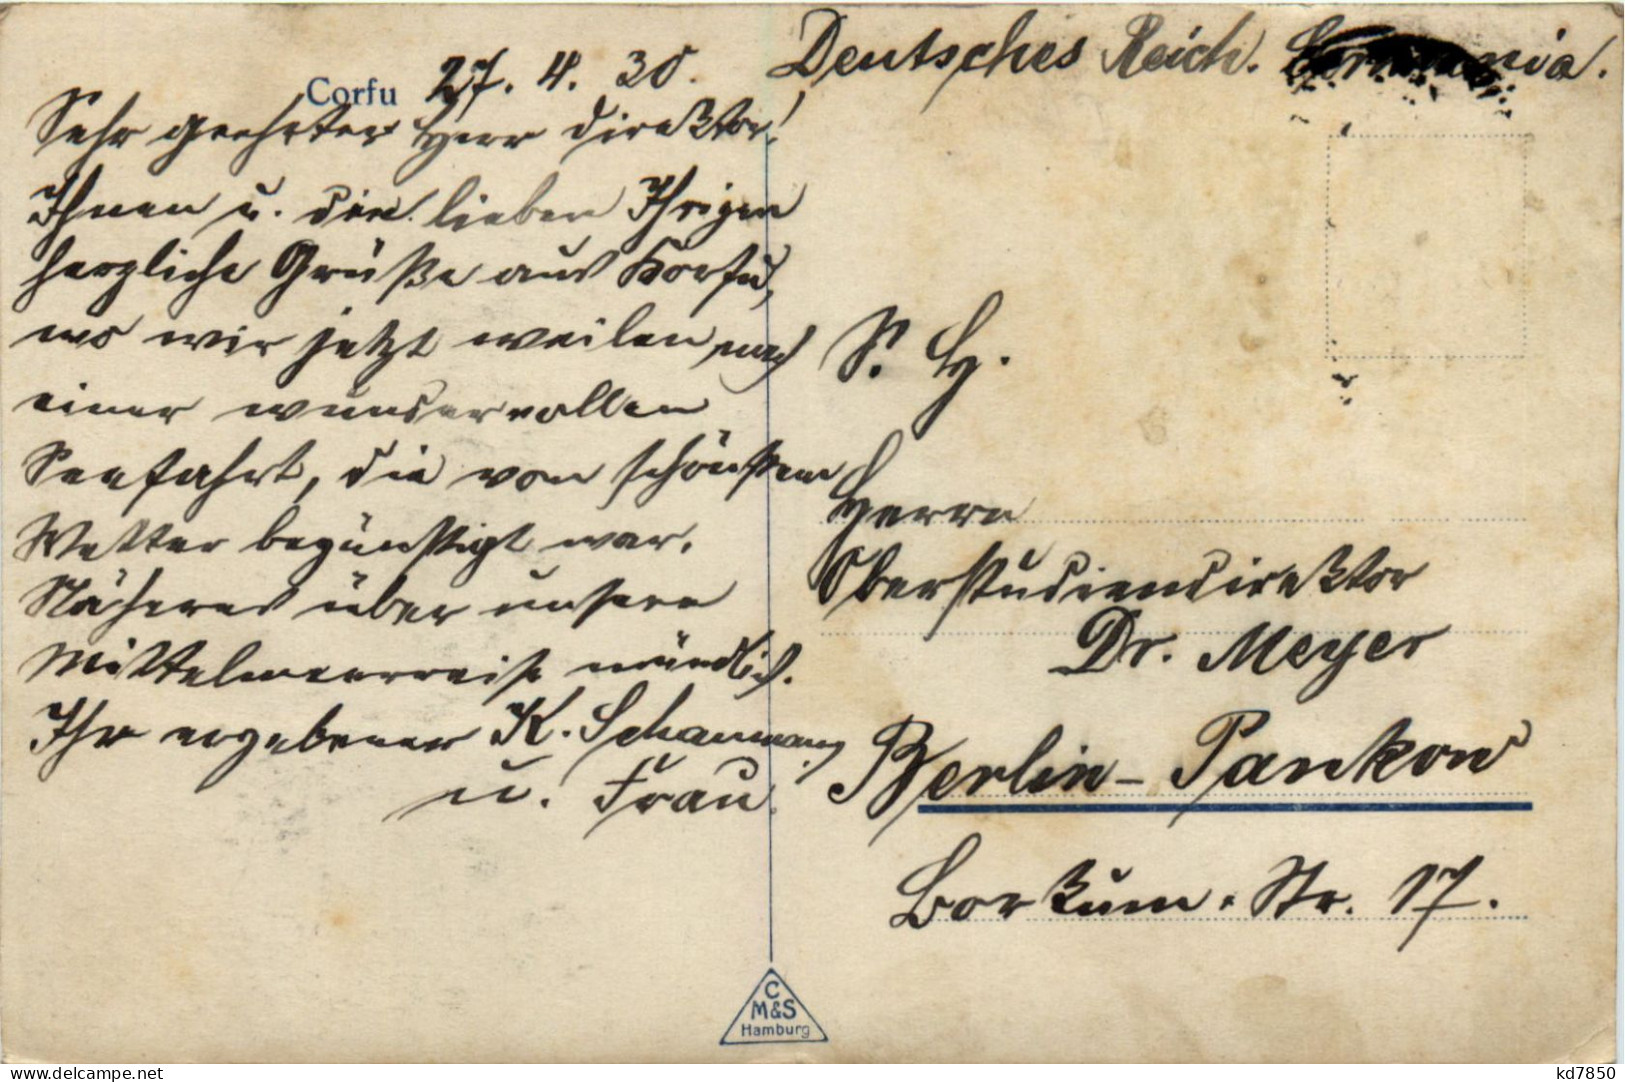 Corfu 27. 4. 30.
Sehr geehrter Herr Direktor!
Ihnen u. den lieben Ihrigen
herzliche Grüße aus Korfu,
wo wir jetzt weilen nach
einer wundervollen
Seefahrt, die vom schönsten
Wetter begünstigt war.
Näheres über unsere
Mittelmeerreise mündlich.
Ihr ergebener K. Schaumann
u. Frau.
Deutsches Reich. Germania.
S. H.
Herrn
Oberstudiendirektor
Dr. Meyer
Berlin-Pankow
Borkum-Str. 17.
C
M&S
Hamburg
www.delcampe.net
kd7850